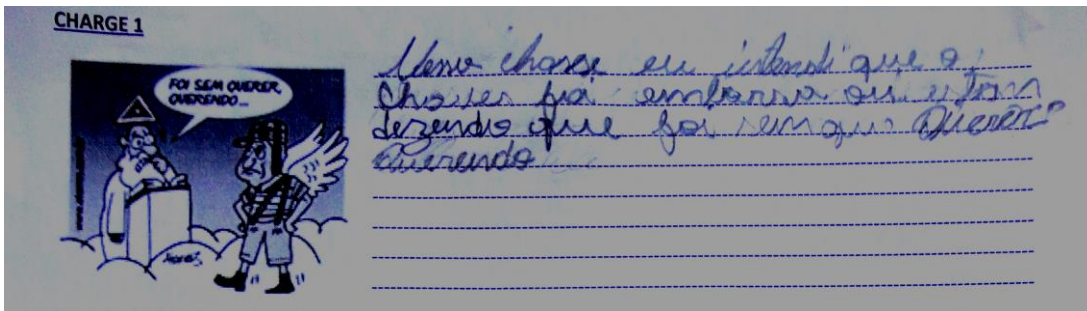 CHARGE 1
FOI SEM QUERER,
QUERENDO...
charge eu intendi que o
Chaves foi embarra ou
dezendo que foi sem que Querer
Querendo